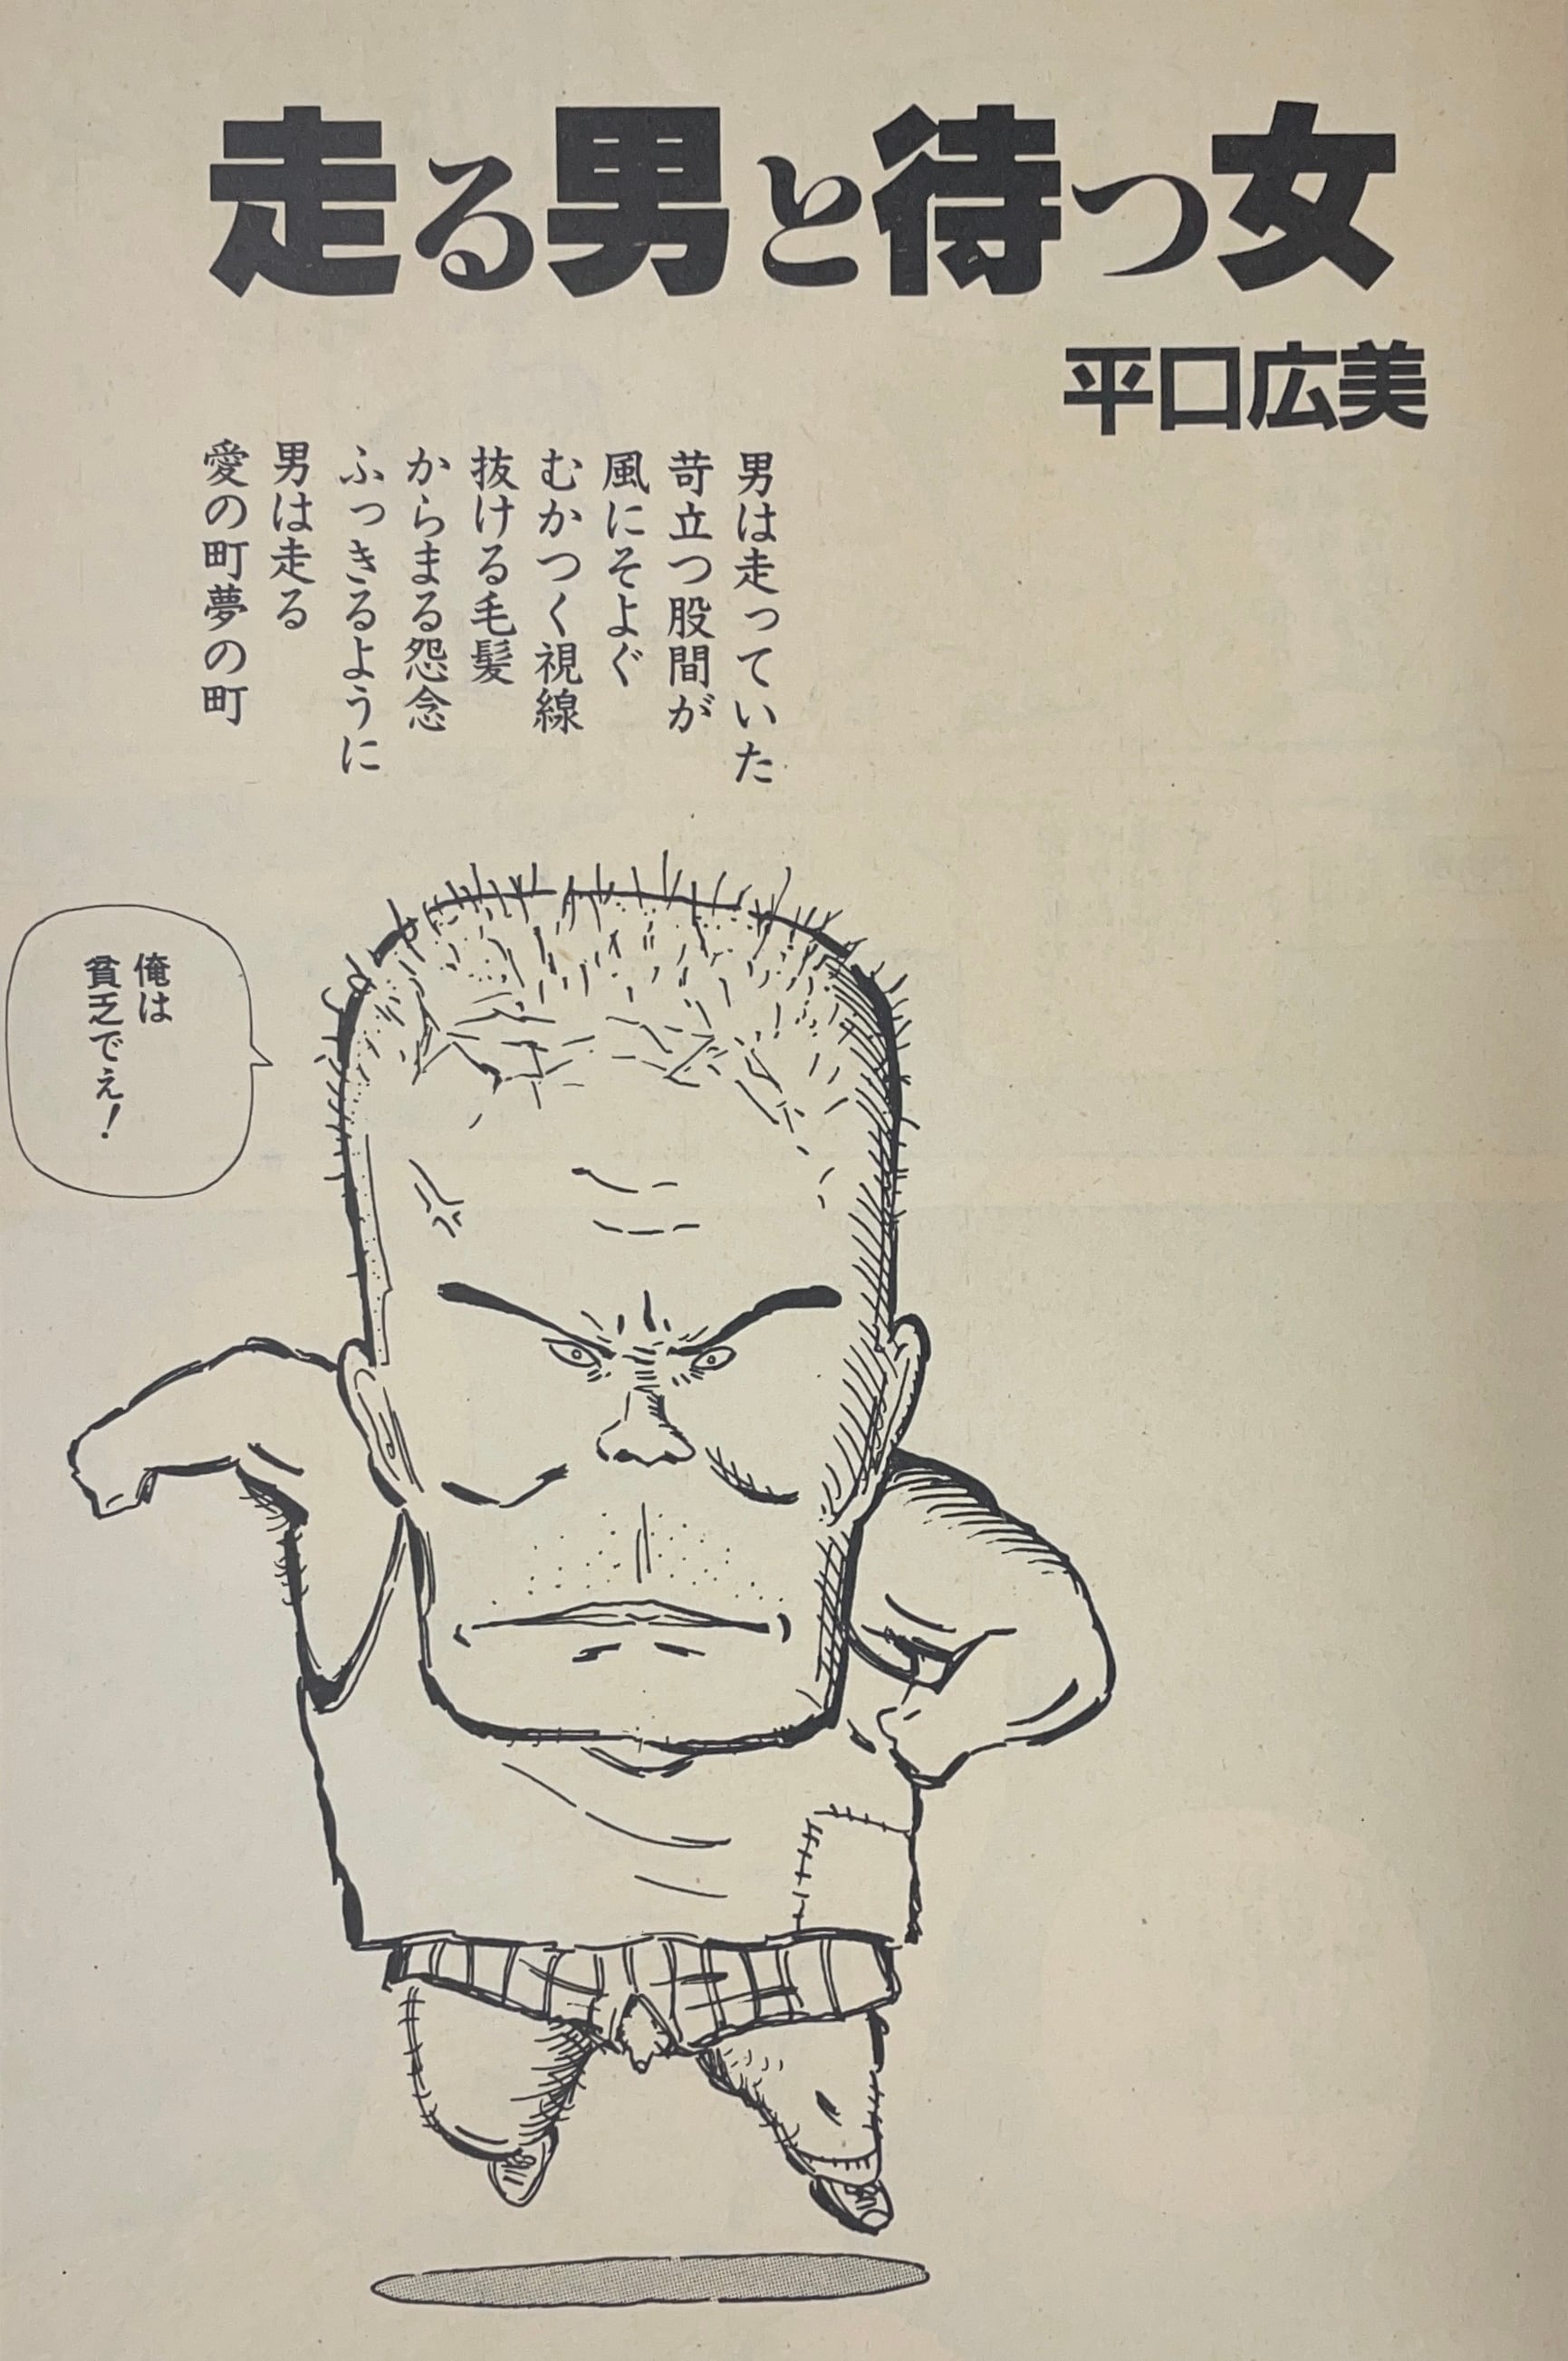 走る男と待つ女
平口広美
男は走っていた
苛立つ股間が
風にそよぐ
むかつく視線
抜ける毛髪
からまる怨念
ふっきるように
男は走る
愛の町夢の町
俺は
貧乏でぇ!